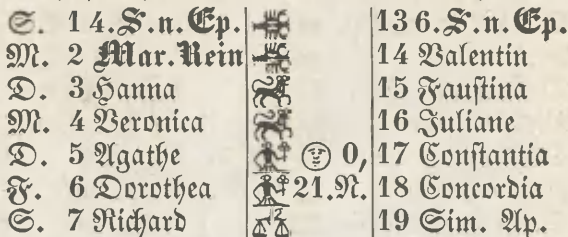 S. 1 4.S.n.Ep. 13 6.S.n.Ep.
M. 2 Mar.Rein 14 Valentin
D. 3 Hanna 15 Faustina
M. 4 Veronica 16 Juliane
D. 5 Agathe 0, 17 Constantia
F. 6 Dorothea 21.N. 18 Concordia
S. 7 Richard 19 Sim. Ap.